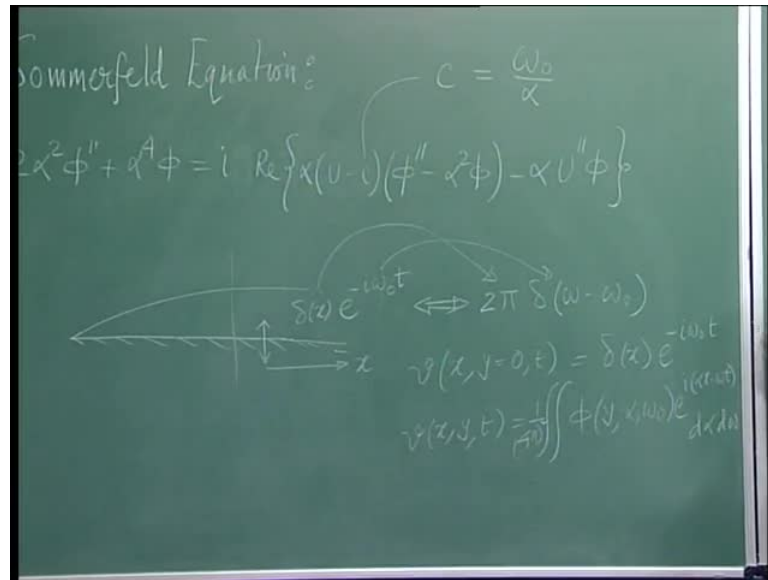 ommerfeld Equation:
c = ω₀/α
2α²φ'' + α⁴φ = i Re{α(U-c)(φ''-α²φ)-αU''φ}
δ(x) e^{-iω₀t} ⇔ 2π δ(ω-ω₀)
x
v(x,y=0,t) = δ(x) e^{-iω₀t}
v(x,y,t) = ∬ φ(y,α,ω₀) e^{i(αx-ωt)} dα dω